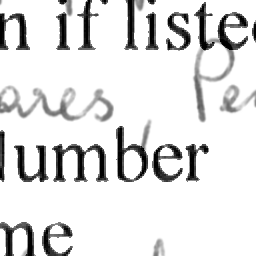 n if listed
ares Pe
Number
me